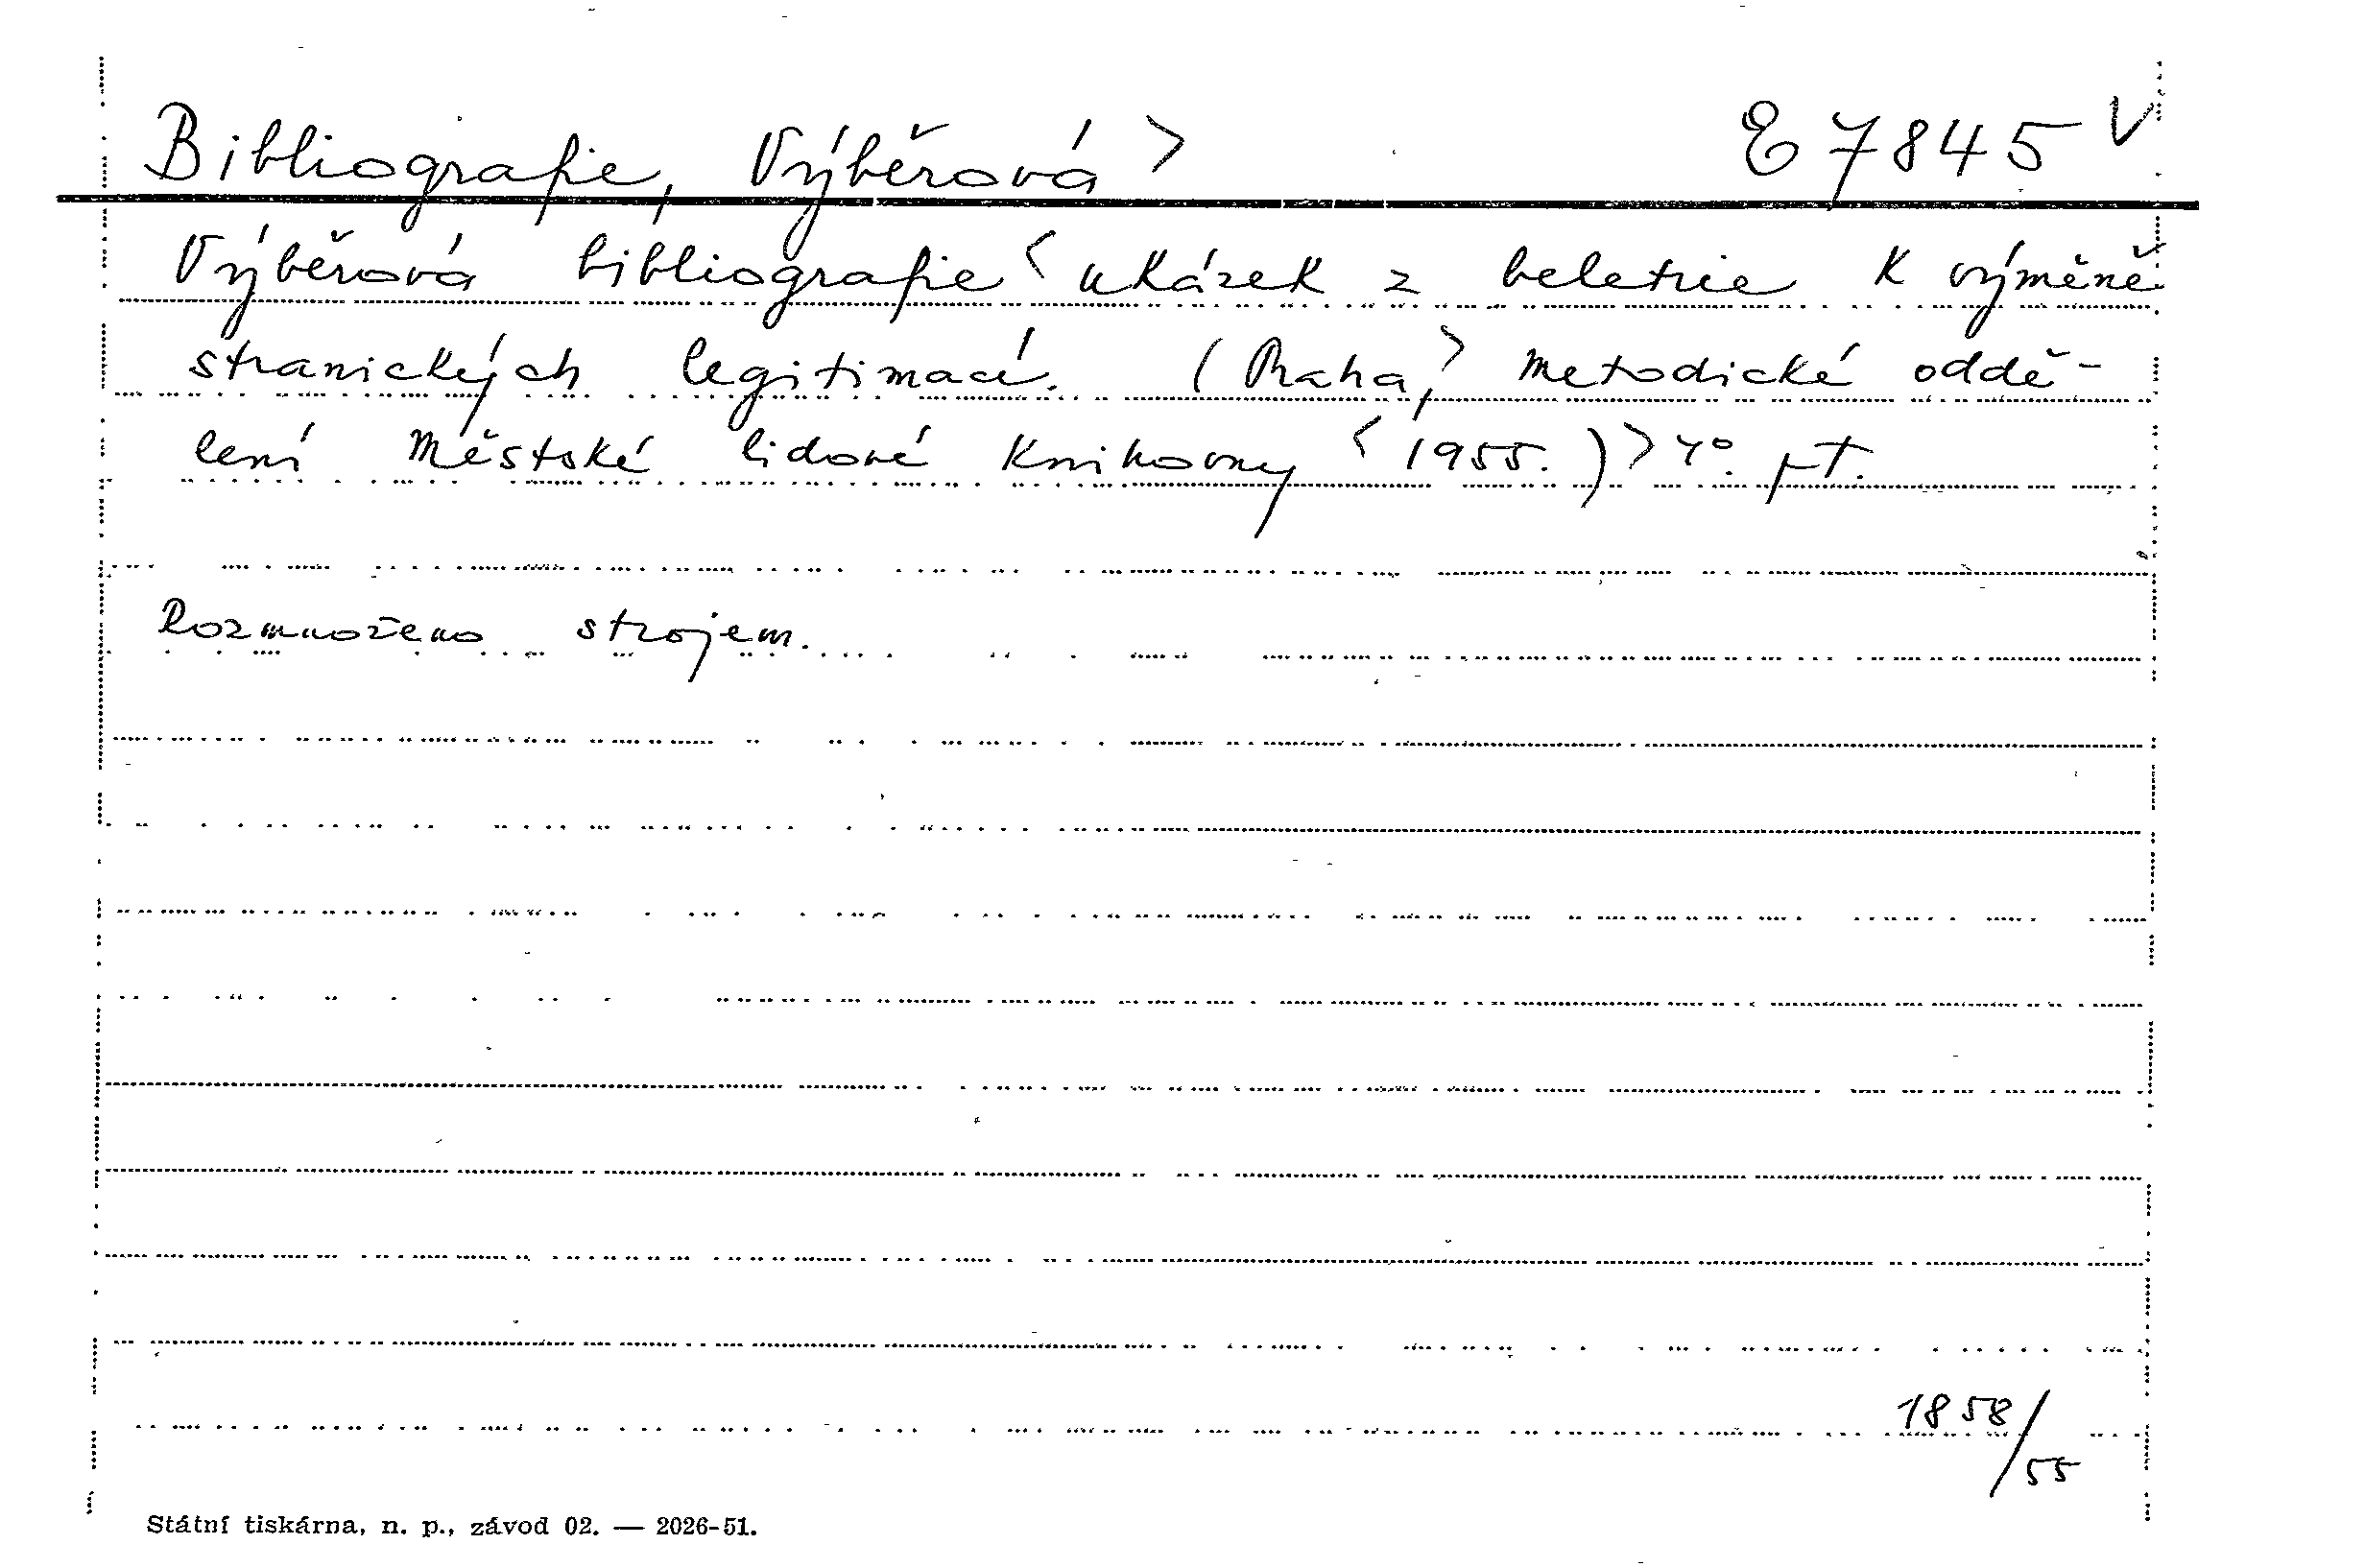 Bibliografie, Výběrová > E 7845 V
Výběrová bibliografie < ukázek z beletrie k výměně
stranických legitimací. (Praha,> Metodické oddě-
lení Městské lidové knihovny < 1955.)> 4°. pT.
Rozmnoženo strojem.
1858/55
Státní tiskárna, n. p., závod 02. — 2026-51.